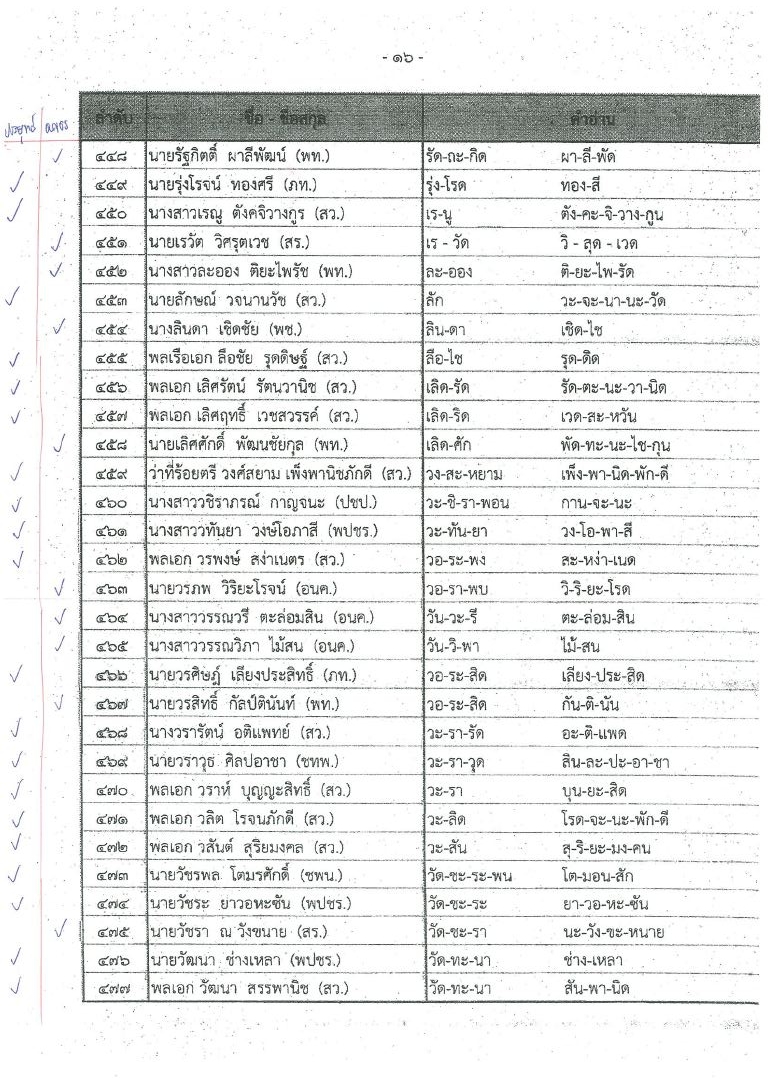 - ๑๖ -
ประยุทธ์ ธนาธร
ลำดับ ชื่อ - ชื่อสกุล คำอ่าน
๔๔๘ นายรัฐกิตติ์ ผาลีพัฒน์ (พท.) รัด-ถะ-กิด ผา-ลี-พัด
๔๔๙ นายรุ่งโรจน์ ทองศรี (ภท.) รุ่ง-โรด ทอง-สี
๔๕๐ นางสาวเรณู ตังคจิวางกูร (สว.) เร-นู ตัง-คะ-จิ-วาง-กูน
๔๕๑ นายเรวัต วิศรุตเวช (สร.) เร - วัด วิ - สุด - เวด
๔๕๒ นางสาวละออง ติยะไพรัช (พท.) ละ-ออง ติ-ยะ-ไพ-รัด
๔๕๓ นายลักษณ์ วจนานวัช (สว.) ลัก วะ-จะ-นา-นะ-วัด
๔๕๔ นางลินดา เชิดชัย (พช.) ลิน-ดา เชิด-ไช
๔๕๕ พลเรือเอก ลือชัย รุดดิษฐ์ (สว.) ลือ-ไช รุด-ดิด
๔๕๖ พลเอก เลิศรัตน์ รัตนวานิช (สว.) เลิด-รัด รัด-ตะ-นะ-วา-นิด
๔๕๗ พลเอก เลิศฤทธิ์ เวชสวรรค์ (สว.) เลิด-ริด เวด-สะ-หวัน
๔๕๘ นายเลิศศักดิ์ พัฒนชัยกุล (พท.) เลิด-ศัก พัด-ทะ-นะ-ไช-กุน
๔๕๙ ว่าที่ร้อยตรี วงศ์สยาม เพ็งพานิชภักดี (สว.) วง-สะ-หยาม เพ็ง-พา-นิด-พัก-ดี
๔๖๐ นางสาววชิราภรณ์ กาญจนะ (ปชป.) วะ-ชิ-รา-พอน กาน-จะ-นะ
๔๖๑ นางสาววทันยา วงษ์โอภาสี (พปชร.) วะ-ทัน-ยา วง-โอ-พา-สี
๔๖๒ พลเอก วรพงษ์ สง่าเนตร (สว.) วอ-ระ-พง สะ-หง่า-เนด
๔๖๓ นายวรภพ วิริยะโรจน์ (อนค.) วอ-รา-พบ วิ-ริ-ยะ-โรด
๔๖๔ นางสาววรรณวรี ตะล่อมสิน (อนค.) วัน-วะ-รี ตะ-ล่อม-สิน
๔๖๕ นางสาววรรณวิภา ไม้สน (อนค.) วัน-วิ-พา ไม้-สน
๔๖๖ นายวรศิษฎ์ เลียงประสิทธิ์ (ภท.) วอ-ระ-สิด เลียง-ประ-สิด
๔๖๗ นายวรสิทธิ์ กัลป์ตินันท์ (พท.) วอ-ระ-สิด กัน-ติ-นัน
๔๖๘ นางวรารัตน์ อติแพทย์ (สว.) วะ-รา-รัด อะ-ติ-แพด
๔๖๙ นายวราวุธ ศิลปอาชา (ชทพ.) วะ-รา-วุด สิน-ละ-ปะ-อา-ชา
๔๗๐ พลเอก วราห์ บุญญะสิทธิ์ (สว.) วะ-รา บุน-ยะ-สิด
๔๗๑ พลเอก วลิต โรจนภักดี (สว.) วะ-ลิด โรด-จะ-นะ-พัก-ดี
๔๗๒ พลเอก วสันต์ สุริยมงคล (สว.) วะ-สัน สุ-ริ-ยะ-มง-คน
๔๗๓ นายวัชรพล โตมรศักดิ์ (ชพน.) วัด-ชะ-ระ-พน โต-มอน-สัก
๔๗๔ นายวัชระ ยาวอหะซัน (พปชร.) วัด-ชะ-ระ ยา-วอ-หะ-ซัน
๔๗๕ นายวัชรา ณ วังขนาย (สร.) วัด-ชะ-รา นะ-วัง-ขะ-หนาย
๔๗๖ นายวัฒนา ช่างเหลา (พปชร.) วัด-ทะ-นา ช่าง-เหลา
๔๗๗ พลเอก วัฒนา สรรพานิช (สว.) วัด-ทะ-นา สัน-พา-นิด